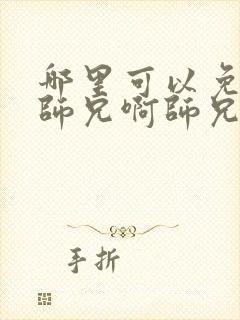 哪里可以免
師兄啊師兄
手折